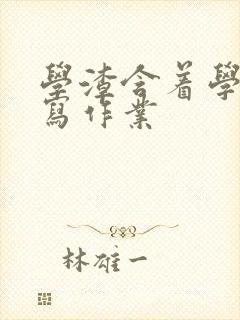 學渣含着學
寫作業
林雄一